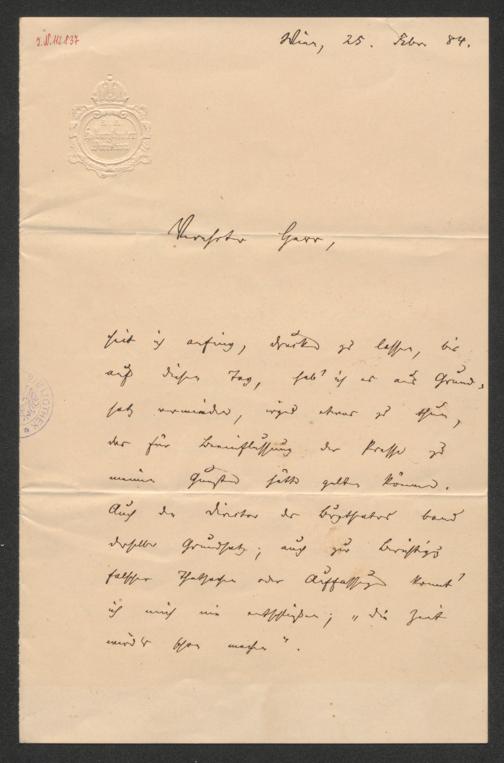 I.N. 111.837
Wien, 25. Febr 84.
Verehrter Herr,
seit ich anfing, drucken zu lassen, bis
auf diesen Tag, hab' ich es aus Grund-
satz vermieden, irgend etwas zu thun,
das für Beeinflussung der Presse zu
meinen Gunsten hätte gelten können.
Auch den Director des Burgtheaters band
derselbe Grundsatz; auch zur Berichtigung
falscher Thatsachen oder Auffassungen konnt'
ich mich nie entschließen; „die Zeit
wird's schon machen".